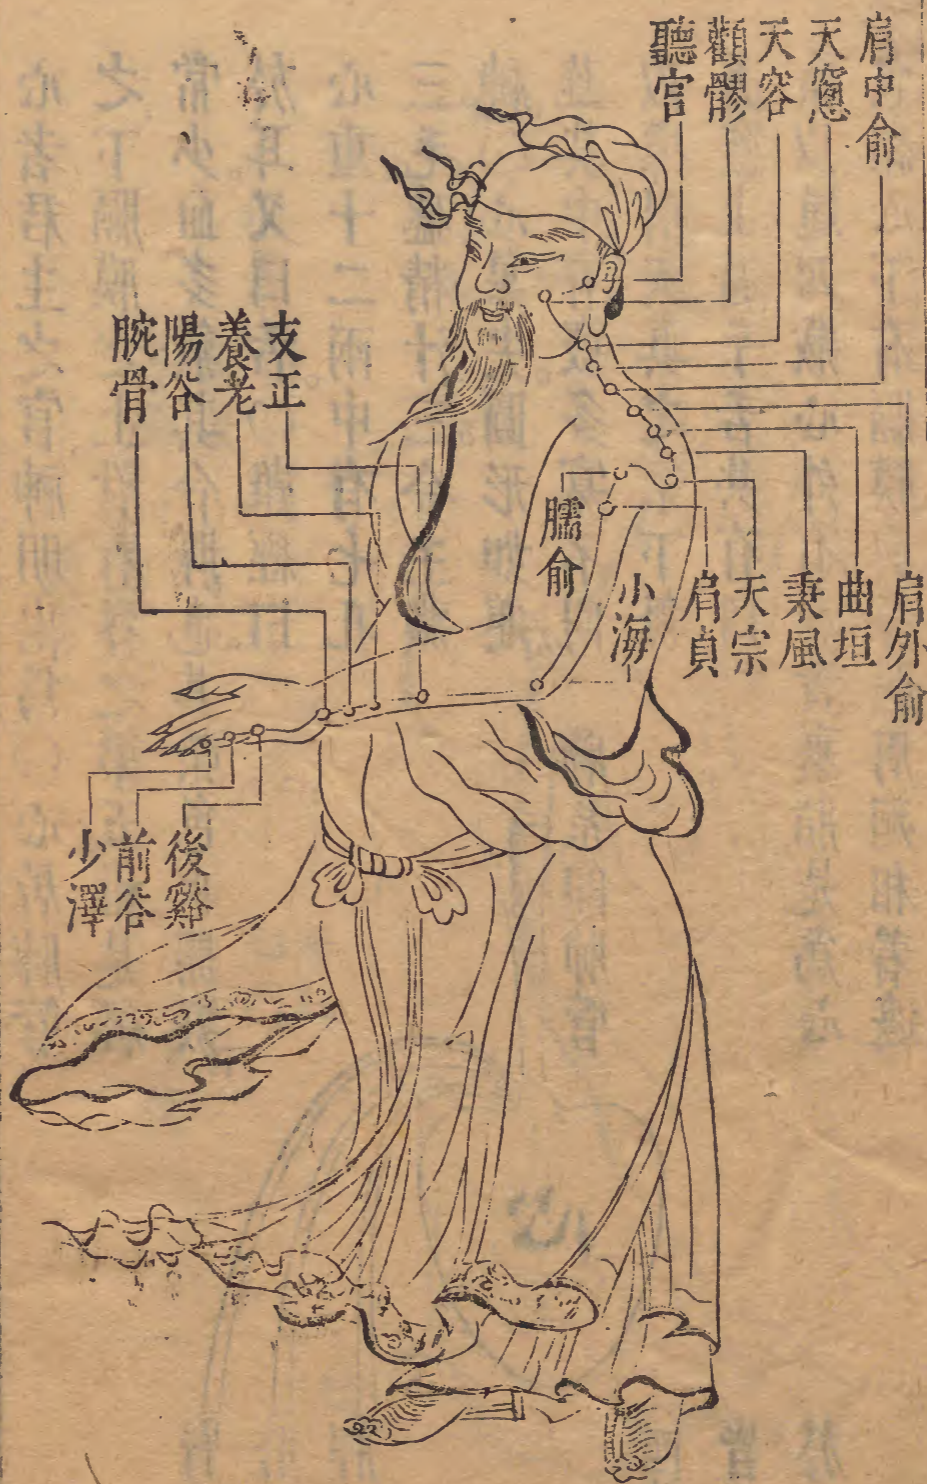 肩中俞
天窻
天容
顴髎
聽宫
支正
養老
陽谷
腕骨
肩外俞
曲垣
秉風
天宗
肩貞
小海
臑俞
後谿
前谷
少澤